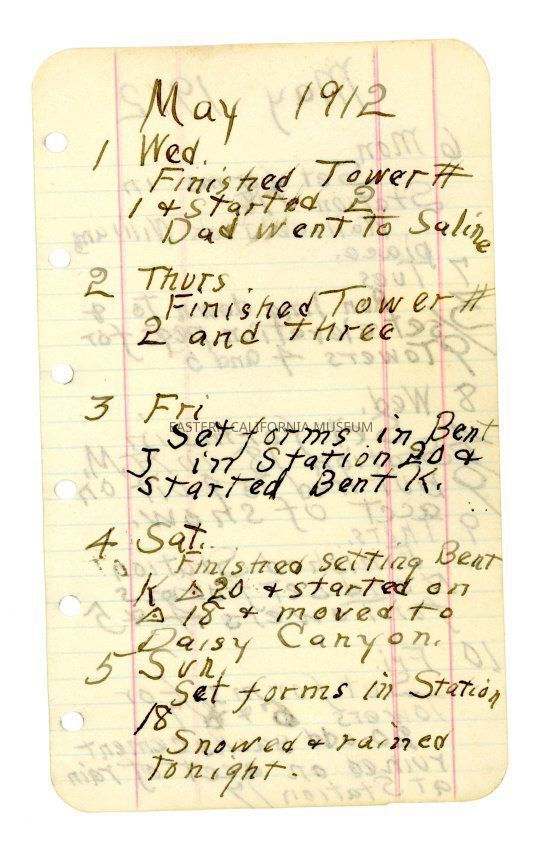 May 1912
1 Wed.
Finished Tower #
1 & Started 2
Dad Went To Saline
2 Thurs.
Finished Tower #
2 and three
3 Fri
EASTERN CALIFORNIA MUSEUM
Set forms in Bent
J in Station 20 &
started Bent K.
4 Sat.
Finished setting Bent
K △ 20 & started on
△ 18 & moved to
Daisy Canyon.
5 Sun.
Set forms in Station
18
Snowed & rained
Tonight.